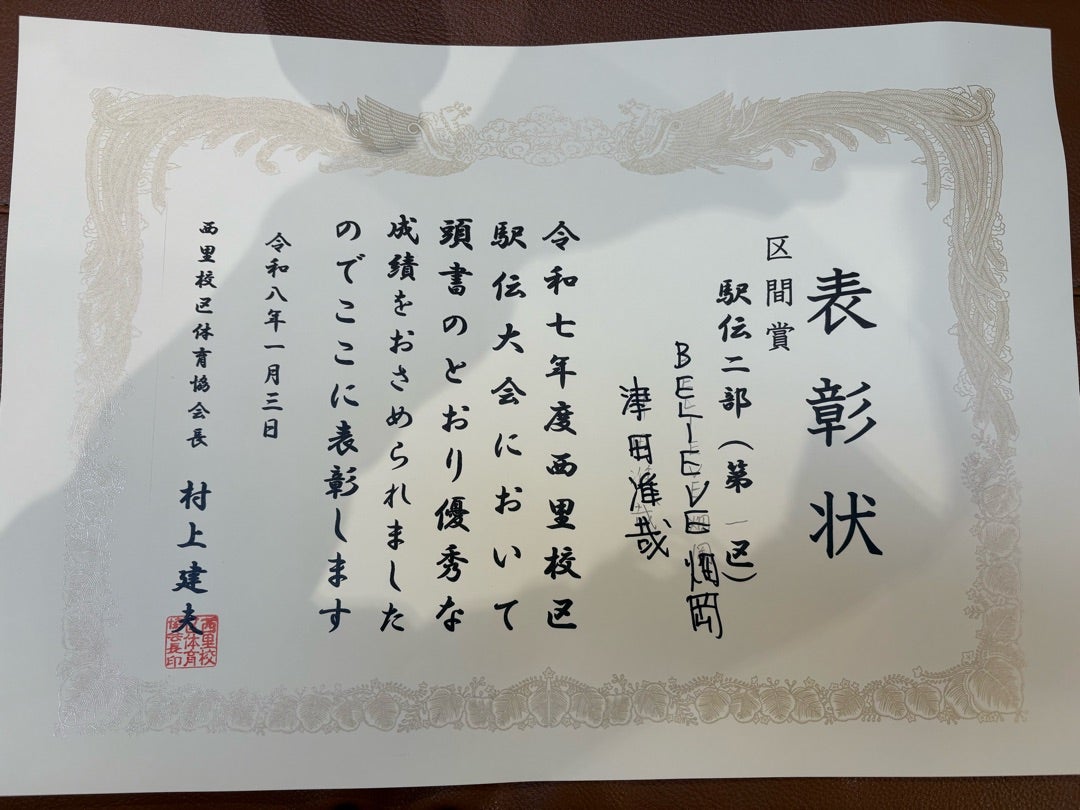 表彰状
区間賞
駅伝二部（第一区）
BELIEVE畑岡
津田准哉
令和七年度西里校区
駅伝大会において
頭書のとおり優秀な
成績をおさめられました
のでここに表彰します
令和八年一月三日
西里校区体育協会長 村上建夫
西里校区体育協会長印